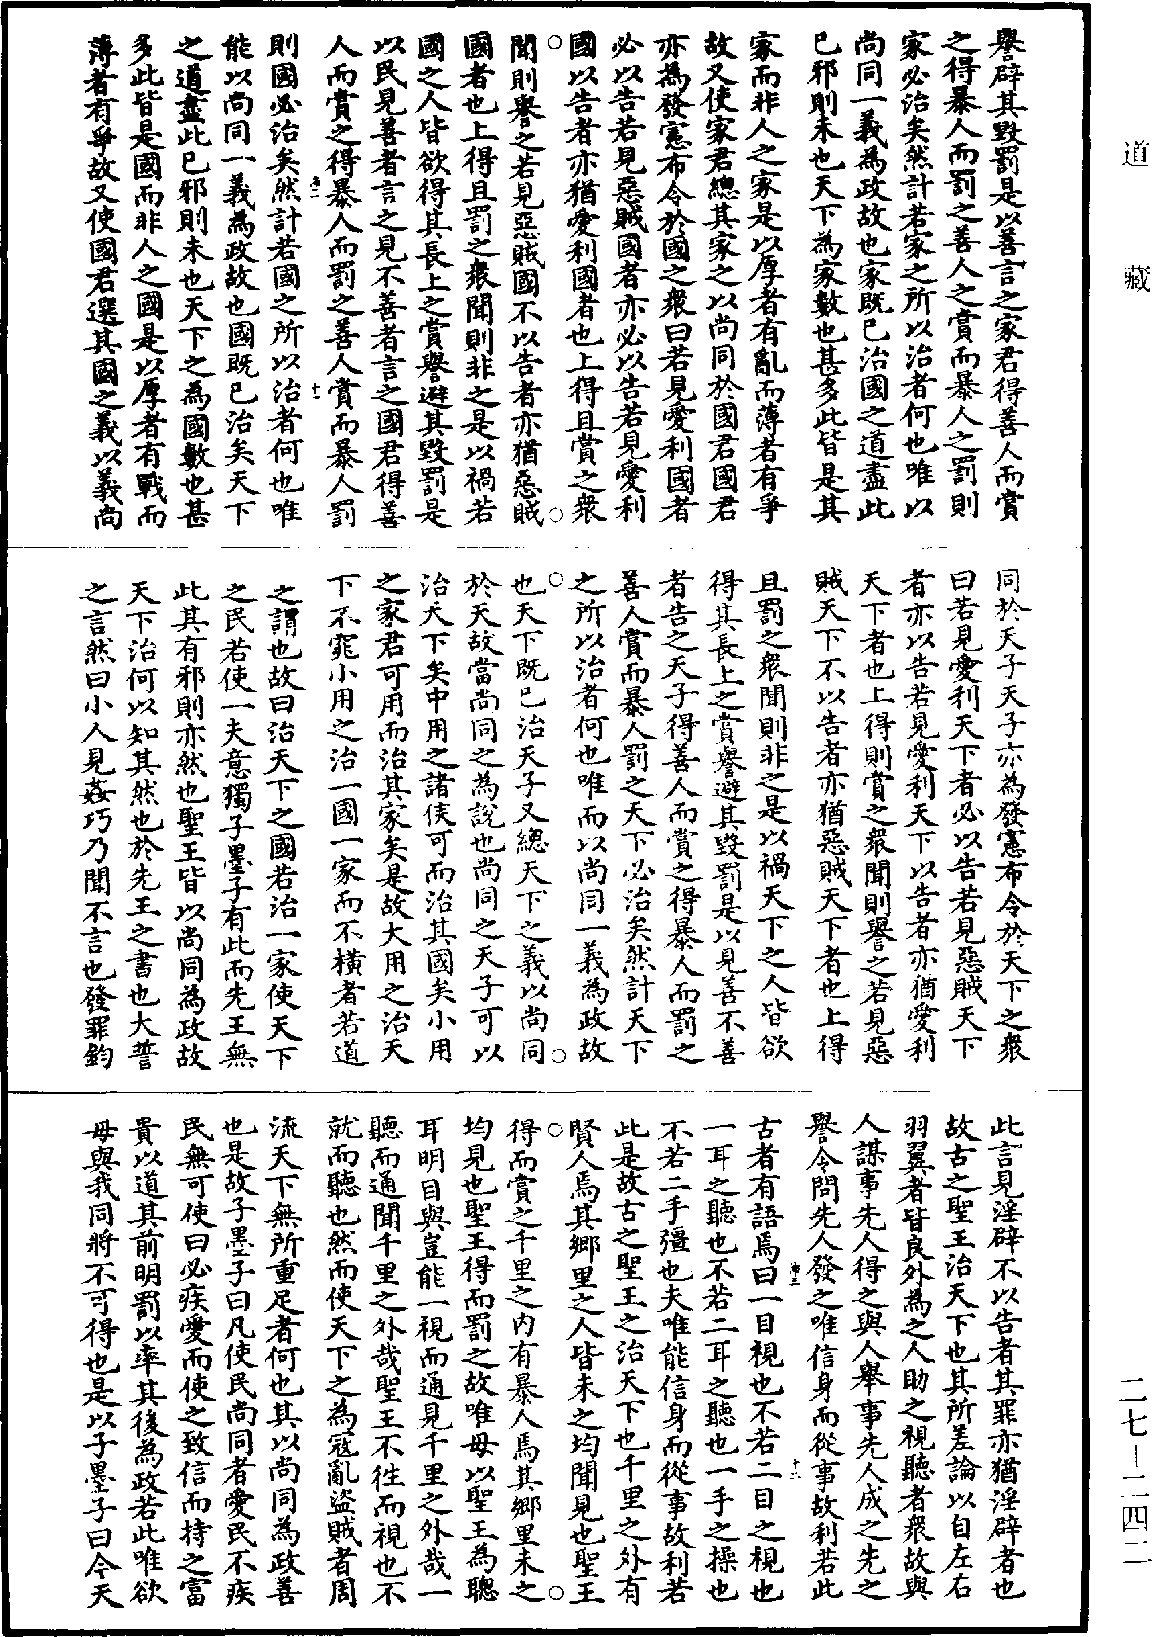 道藏
譽辟其毀罰是以善言之家君得善人而賞
之得暴人而罰之善人之賞而暴人之罰則
家必治矣然計若家之所以治者何也唯以
尚同一義為政故也家既已治國之道盡此
已邪則未也天下為家數也甚多此皆是其
家而非人之家是以厚者有亂而薄者有爭
故又使家君總其家之以尚同於國君國君
亦為發憲布令於國之衆曰若見愛利國者
必以告若見惡賊國者亦必以告若見愛利
國以告者亦猶愛利國者也上得且賞之衆
聞則譽之若見惡賊國不以告者亦猶惡賊
國者也上得且罰之衆聞則非之是以禍若
國之人皆欲得其長上之賞譽避其毀罰是
以民見善者言之見不善者言之國君得善
人而賞之得暴人而罰之善人賞而暴人罰
則國必治矣然計若國之所以治者何也唯
能以尚同一義為政故也國既已治矣天下
之道盡此已邪則未也天下之為國數也甚
多此皆是國而非人之國是以厚者有戰而
薄者有爭故又使國君選其國之義以義尚
同於天子天子亦為發憲布令於天下之衆
曰若見愛利天下者必以告若見惡賊天下
者亦以告若見愛利天下以告者亦猶愛利
天下者也上得則賞之衆聞則譽之若見惡
賊天下不以告者亦猶惡賊天下者也上得
且罰之衆聞則非之是以禍天下之人皆欲
得其長上之賞譽避其毀罰是以見善不善
者告之天子得善人而賞之得暴人而罰之
善人賞而暴人罰之天下必治矣然計天下
之所以治者何也唯而以尚同一義為政故
也天下既已治天子又總天下之義以尚同
於天故當尚同之為說也尚同之天子可以
治天下矣中用之諸侯可而治其國矣小用
之家君可用而治其家矣是故大用之治天
下不窕小用之治一國一家而不橫者若道
之謂也故曰治天下之國若治一家使天下
之民若使一夫意獨子墨子有此而先王無
此其有邪則亦然也聖王皆以尚同為政故
天下治何以知其然也於先王之書也大誓
之言然曰小人見姦巧乃聞不言也發罪鈞
此言見淫辟不以告者其罪亦猶淫辟者也
故古之聖王治天下也其所差論以自左右
羽翼者皆良外為之人助之視聽者衆故與
人謀事先人得之與人舉事先人成之先之
譽令問先人發之唯信身而從事故利若此
古者有語焉曰一目視也不若二目之視也
一耳之聽也不若二耳之聽也一手之操也
不若二手彊也夫唯能信身而從事故利若
此是故古之聖王之治天下也千里之外有
賢人焉其鄉里之人皆未之均聞見也聖王
得而賞之千里之內有暴人焉其鄉里未之
均見也聖王得而罰之故唯毋以聖王為聰
耳明目與豈能一視而通見千里之外哉一
聽而通聞千里之外哉聖王不徃而視也不
就而聽也然而使天下之為寇亂盜賊者周
流天下無所重足者何也其以尚同為政善
也是故子墨子曰凡使民尚同者愛民不疾
民無可使曰必疾愛而使之致信而持之富
貴以道其前明罰以率其後為政若此唯欲
毋與我同將不可得也是以子墨子曰今天
二七—二四二